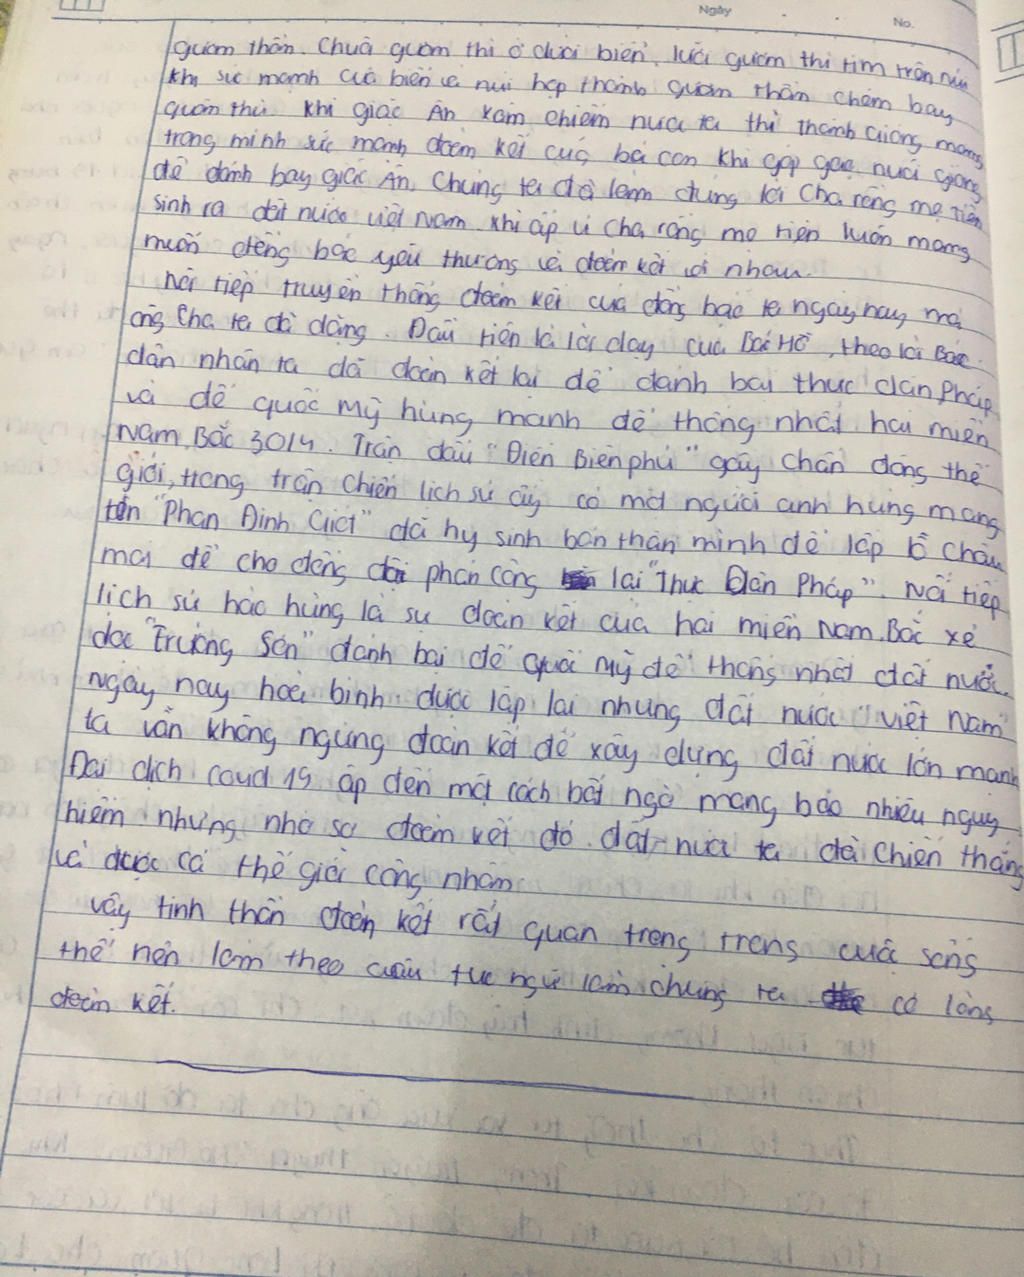 Ngày
No.
gươm thần. Chuả gươm thì ở dưới biển, lưỡi gươm thì tìm trên núi
khi sức mạnh củả biển và núi hợp thành gươm thần chém bay
quân thù. khi giặc Ân xâm chiếm nước ta thì thánh Gióng mang
trong mình sức mạnh đoàn kết của bà con khi góp gạo nuôi Gióng
để đánh bay giặc Ân. Chúng ta đã làm đúng lời Cha rồng mẹ tiên
sinh ra đất nước việt Nam. khi ấp ủ cha rồng mẹ tiên luôn mong
muốn đồng bào yêu thương và đoàn kết với nhau.
Nối tiếp truyền thống đoàn kết của đồng bào ta ngày nay mà
ông Cha ta đã dặng. Đầu tiên là lời dạy của Bác Hồ, theo lời Bác
dân nhân ta đã đoàn kết lại để đánh bại thực dân Pháp
và đế quốc Mỹ hùng mạnh để thống nhất hai miền
Nam, Bắc 30/4. Trận đấu "Điện Biên phủ" gây chấn động thế
giới, trong trận chiến lịch sử ấy có một người anh hùng mang
tên "Phan Đình Giót" đã hy sinh bản thân mình để lấp lỗ châu
mai để cho đồng đội phản công lại "Thực Dân Pháp". Nối tiếp
lịch sử hào hùng là sự đoàn kết của hai miền Nam, Bắc xẻ
dọc "Trường Sơn" đánh bại đế quốc mỹ để thống nhất đất nước.
Ngày nay hoà bình được lập lại nhưng đất nước "việt Nam"
ta vẫn không ngừng đoàn kết để xây dựng đất nước lớn mạnh
Đại dịch Covid 19 ập đến một cách bất ngờ mang bao nhiêu nguy
hiểm nhưng nhờ sợ đoàn kết đó đất nước ta đã Chiến thắng
và được cả thế giới công nhận
vậy tinh thần đoàn kết rất quan trọng trong cuộc sống
thế nên làm theo câu tục ngữ làm chúng ta có lòng
đoàn kết.